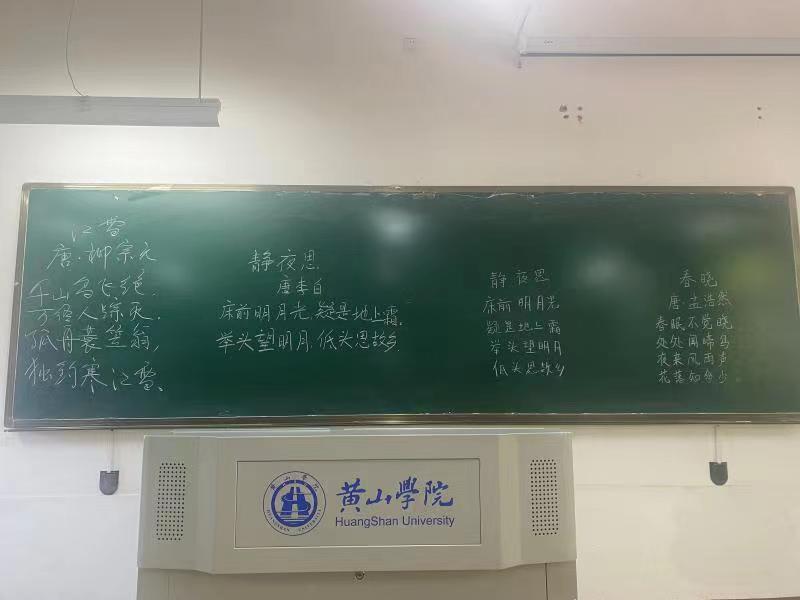 江雪
唐·柳宗元
千山鸟飞绝,
万径人踪灭.
孤舟蓑笠翁,
独钓寒江雪、
静夜思
唐李白
床前明月光,疑是地上霜。
举头望明月,低头思故乡
静夜思
床前明月光
疑是地上霜
举头望明月
低头思故乡
春晓
唐 孟浩然
春眠不觉晓
处处闻啼鸟
夜来风雨声
花落知多少
黄山學院
HuangShan University